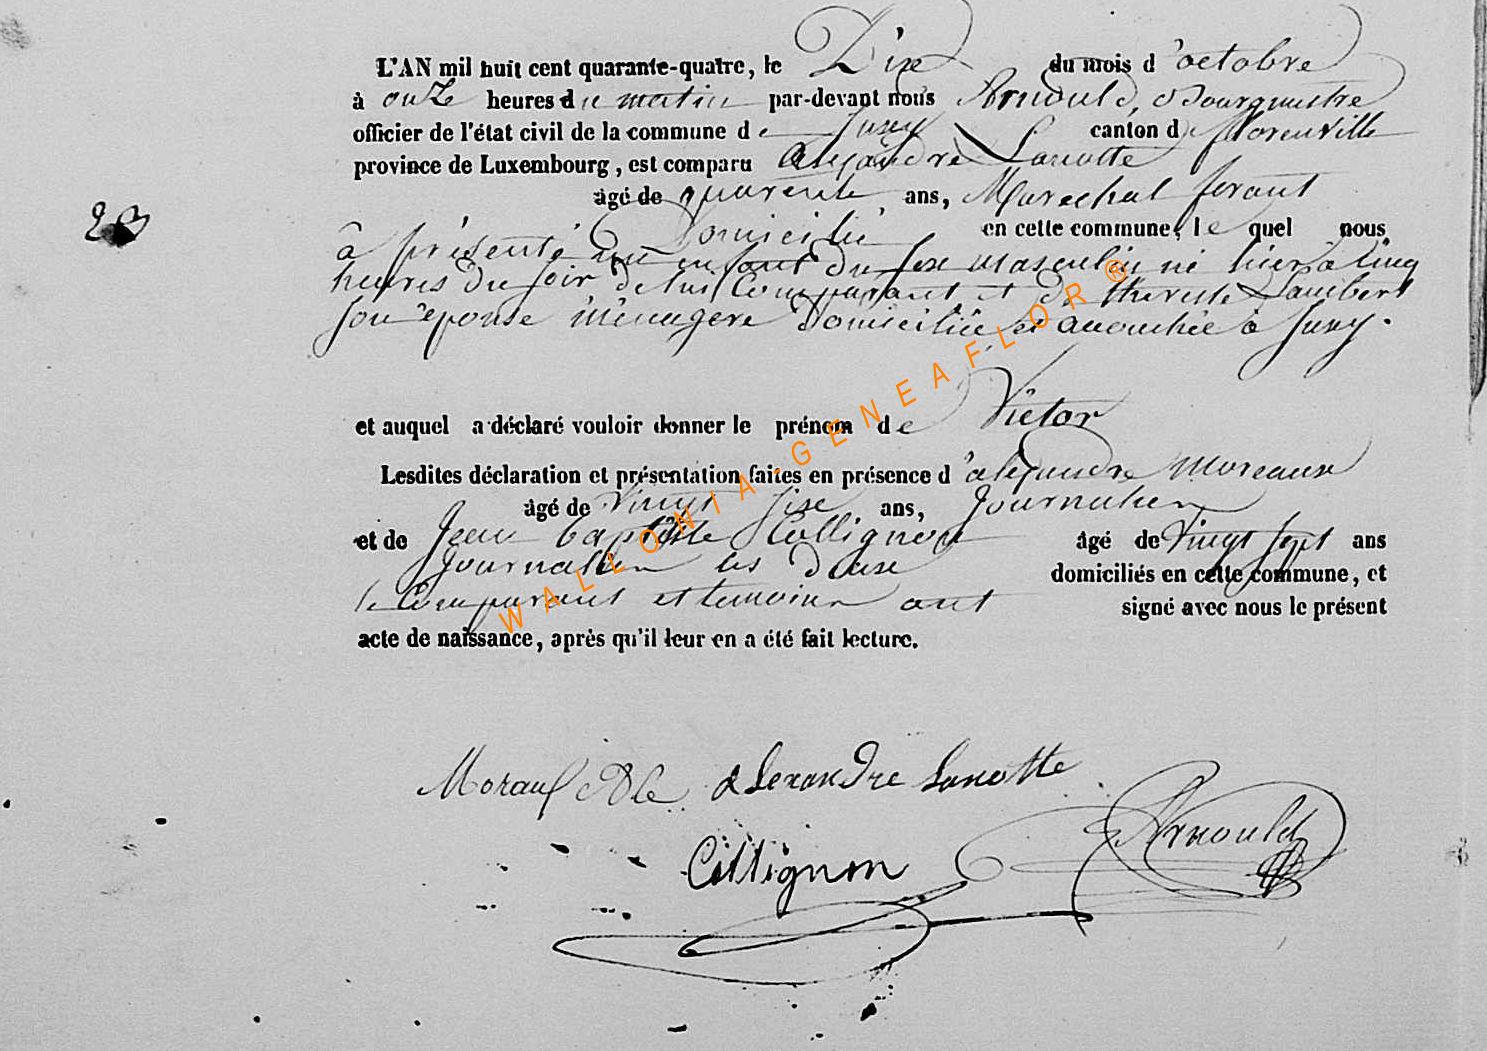 L'AN mil huit cent quarante-quatre, le Dixe du mois d'octobre
à onze heures du matin par-devant nous Arnould, Bourgmestre
officier de l'état civil de la commune de Jusey canton de florenville
province de Luxembourg, est comparu Alexandre Lanotte
âgé de quarente ans, Marechal ferant
23
Domicilié en cette commune, le quel nous
à présenté un enfant du sexe masculin né hier à cinq
heures du soir de lui Comparant et de therese Lambert
son épouse ménagère domiciliée et accouchée à Jusey.
et auquel a déclaré vouloir donner le prénom de Victor
Lesdites déclaration et présentation faites en présence d'alexandre Moreaux
âgé de Vingt sixe ans, Journalier
et de Jean baptiste Collignon âgé de Vingt sept ans
Journalier les deux domiciliés en cette commune, et
le Comparant et temoins ont signé avec nous le présent
acte de naissance, après qu'il leur en a été fait lecture.
WALLONIA-GENEAFLOR®
Alexandre Lanotte
Arnould
Collignon